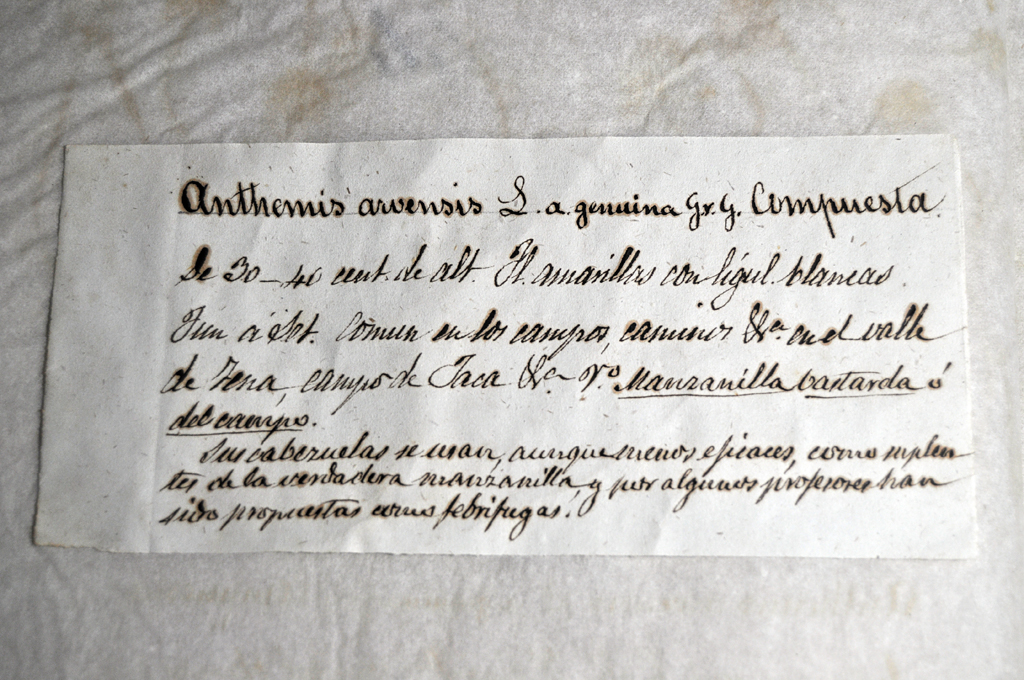 Anthemis arvensis L. a. genuina Gr. G. Compuesta.
De 30-40 cent. de alt. Fl. amarillas con lígul. blancas.
Jun á Set. Comun en los campos, caminos &ª. en el valle
de Tena, campo de Jaca &ª Vº Manzanilla bastarda ó
del campo.
Sus cabezuelas se usan, aunque menos eficaces, como suplen-
tes de la verdadera manzanilla, y por algunos profesores han
sido propuestas como febrifugas.